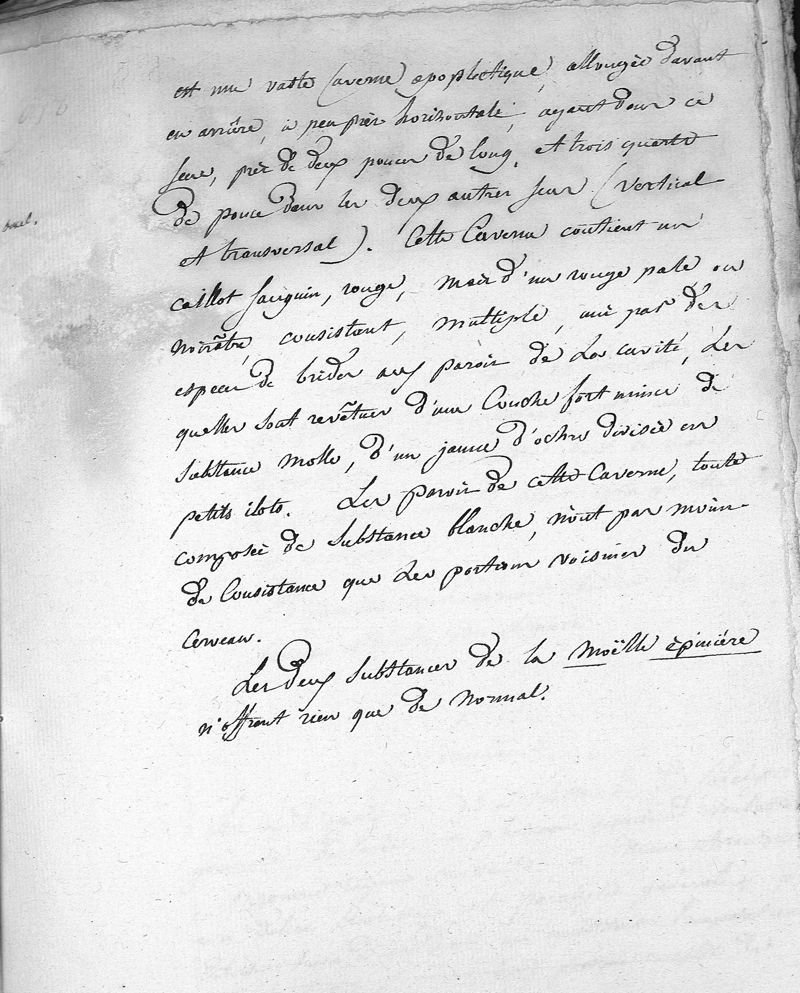 est une vaste Caverne apoplectique, allongée d'avant
en arrière, à peu près horizontale, ayant dans ce
sens, près de deux pouces de long, et trois quarts
de pouce dans les deux autres sens (vertical
et transversal). Cette Caverne contient un
caillot sanguin, rouge, mais d'un rouge pale ou
noirâtre, consistant, multiple, uni par des
especes de brides aux parois de la cavité, les
quelles sont revêtues d'une Couche fort mince de
substance molle, d'un jaune d'ochre divisée en
petits ilots. Les parois de cette Caverne, toute
composée de substance blanche, n'ont pas moins
de Consistance que les portions voisines du
Cerveau.
Les deux substances de la Moëlle épinière
n'offrent rien que de Normal.